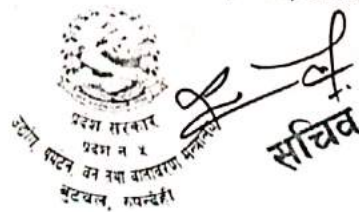 प्रदेश सरकार
प्रदेश नं ५
उद्योग, पर्यटन, वन तथा वातावरण मन्त्रालय
बुटवल, रुपन्देही
सचिव